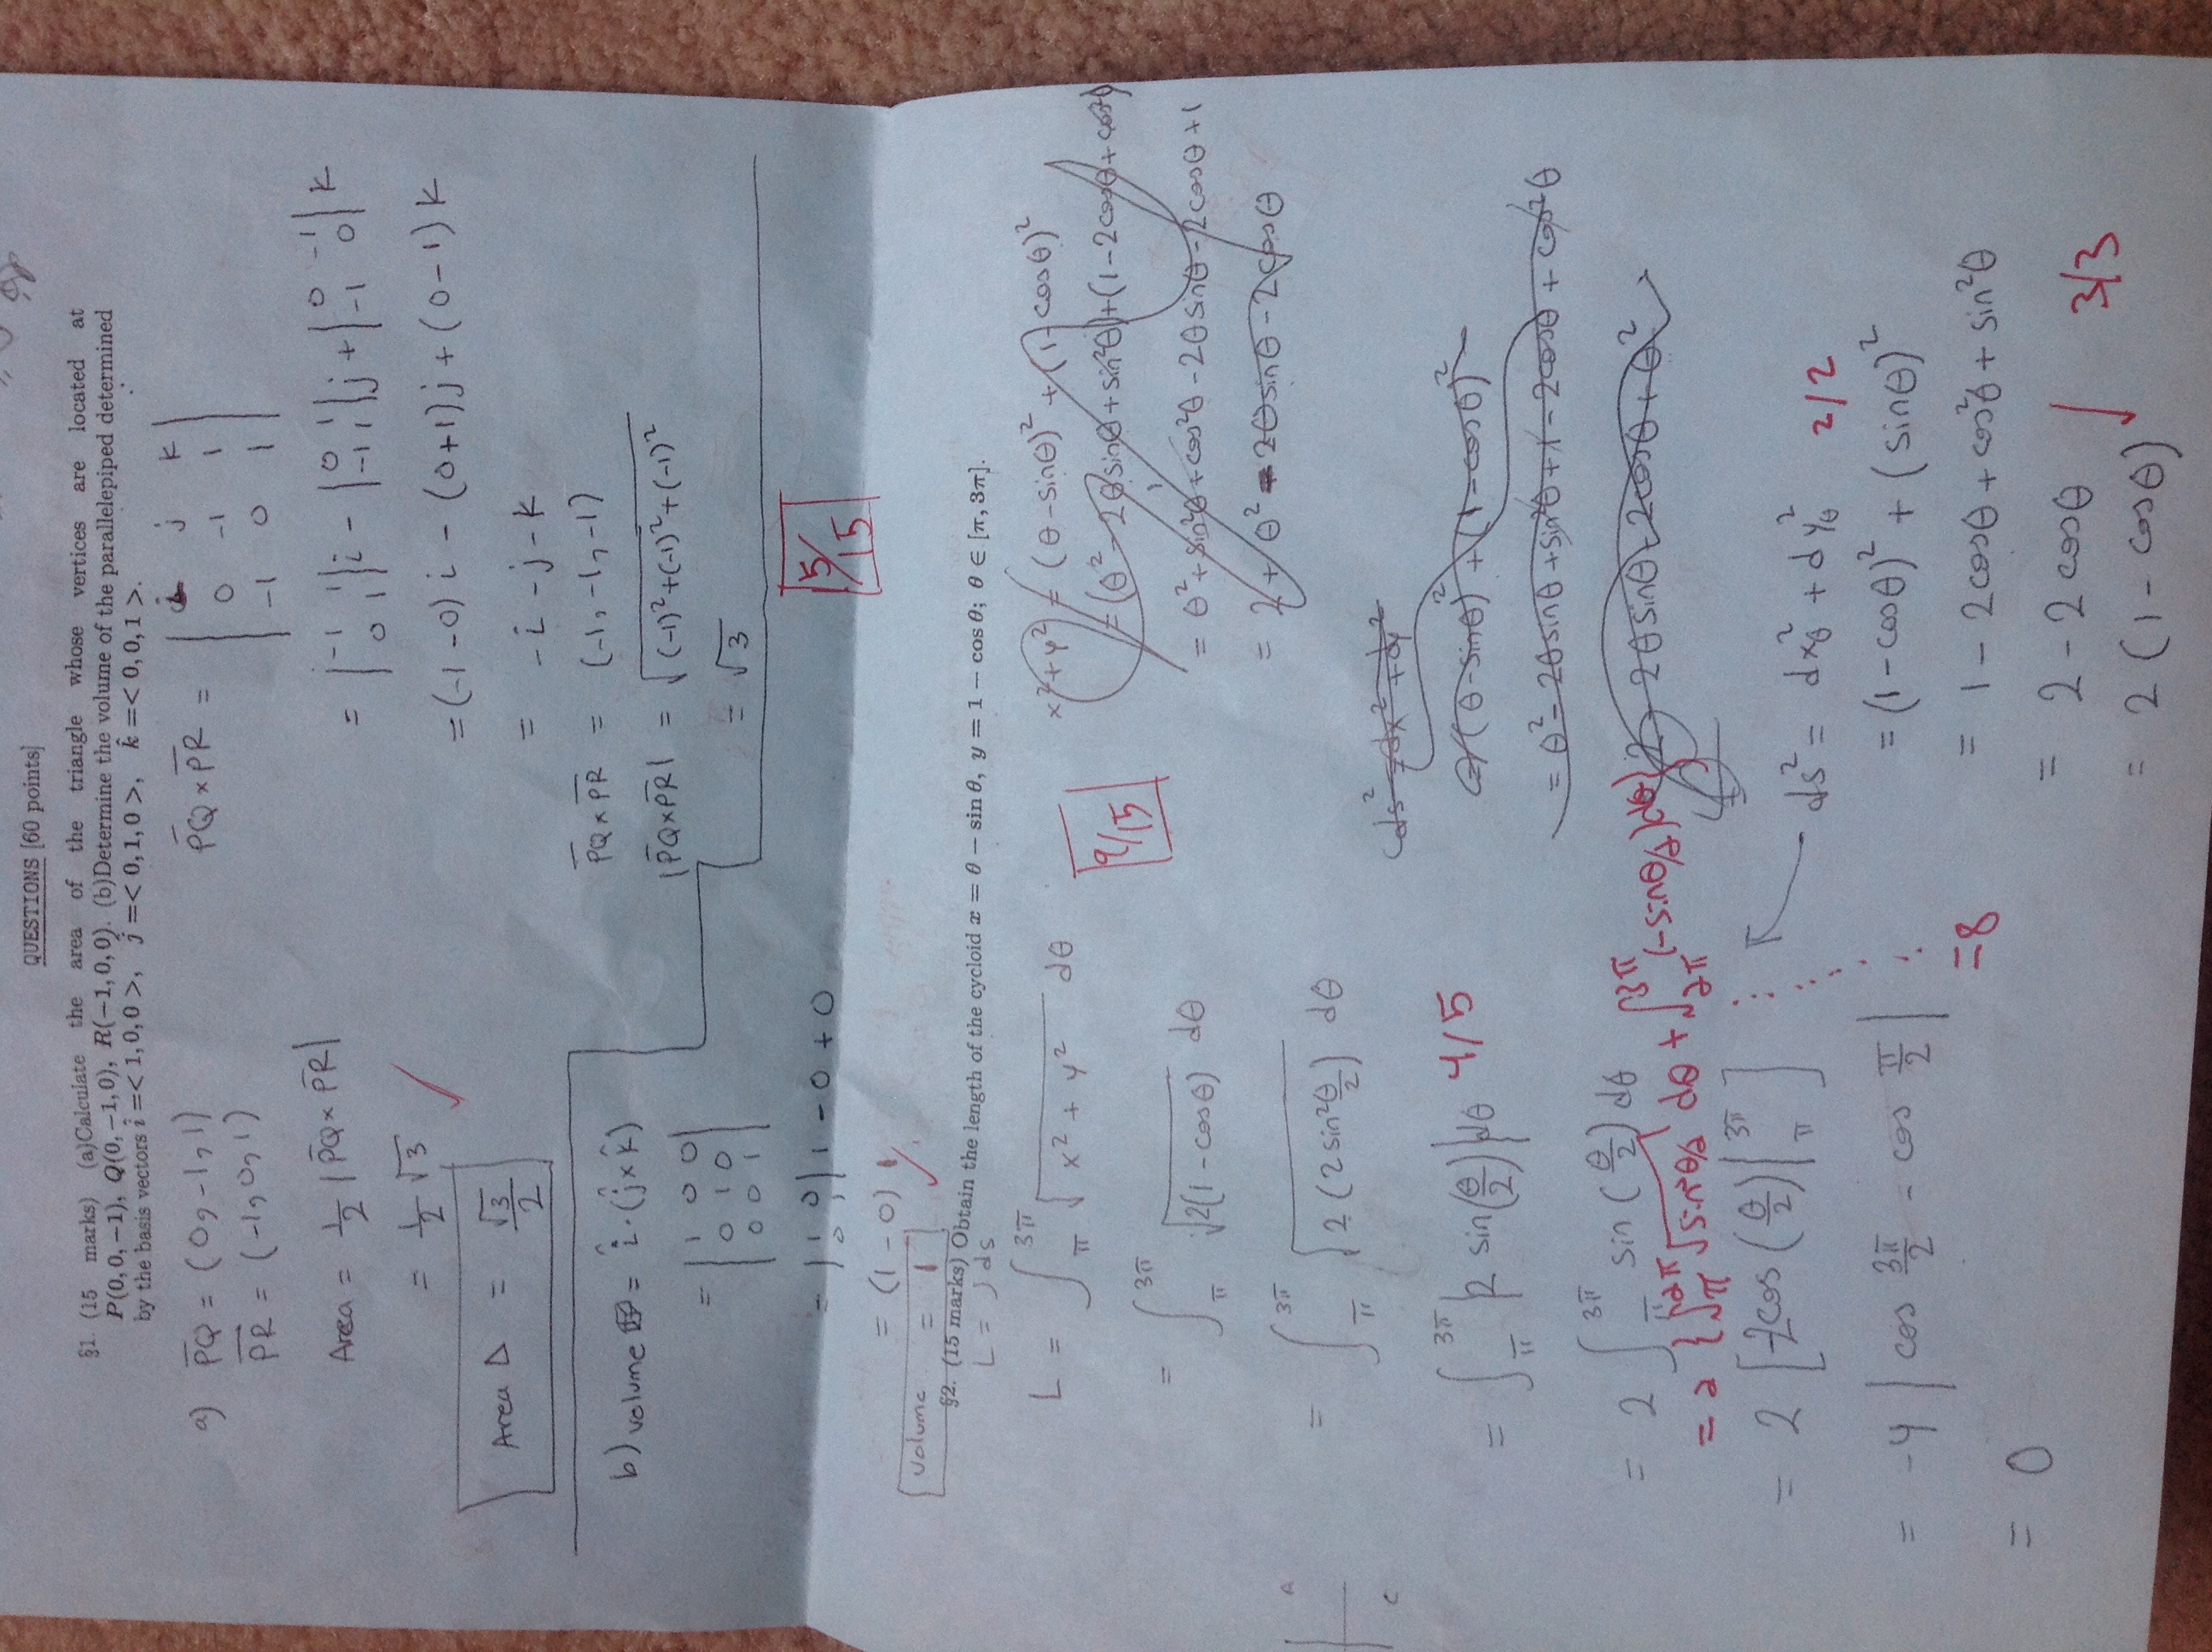 QUESTIONS [60 points]
§1. (15 marks) (a)Calculate the area of the triangle whose vertices are located at
P(0, 0, −1), Q(0, −1, 0), R(−1, 0, 0). (b)Determine the volume of the parallelepiped determined
by the basis vectors î =< 1, 0, 0 >, ĵ =< 0, 1, 0 >, k̂ =< 0, 0, 1 >.
a) PQ = (0, -1, 1)
PR = (-1, 0, 1)
Area = 1/2 |PQ × PR|
= 1/2 √3
Area Δ = √3/2
PQ × PR = | i j k |
| 0 -1 1 |
| -1 0 1 |
= |-1 1; 0 1| i - |0 1; -1 1| j + |0 -1; -1 0| k
= (-1-0) i - (0+1) j + (0-1) k
= -i - j - k
PQ × PR = (-1, -1, -1)
|PQ × PR| = √((-1)²+(-1)²+(-1)²)
= √3
5/15
b) volume = î · (ĵ × k̂)
= | 1 0 0 |
| 0 1 0 |
| 0 0 1 |
= |1 0; 0 1| 1 - 0 + 0
= (1-0) 1
volume = 1
§2. (15 marks) Obtain the length of the cycloid x = θ − sin θ, y = 1 − cos θ; θ ∈ [π, 3π].
L = ∫ ds
L = ∫_π^3π √(x² + y²) dθ
= ∫_π^3π √(2(1-cosθ)) dθ
= ∫_π^3π √(2(2sin²θ/2)) dθ
= ∫_π^3π |2 sin(θ/2)| dθ 4/5
= 2 ∫_π^3π sin(θ/2) dθ
= 2 {∫_π^2π sinθ/2 dθ + ∫_2π^3π (-sinθ/2)(dθ)}
= 2 [-2cos(θ/2)|_π^3π]
= -4 | cos 3π/2 - cos π/2 | =8
= 0
9/15
x²+y² = (θ-sinθ)² + (1-cosθ)²
= (θ² - 2θsinθ + sin²θ) + (1-2cosθ + cos²θ)
= θ² + sin²θ + cos²θ - 2θsinθ - 2cosθ + 1
= 2 + θ² - 2θsinθ - 2cosθ
ds² = dx² + dy²
(θ-sinθ)² + (1-cosθ)²
= θ² - 2θsinθ + sin²θ + 1 - 2cosθ + cos²θ
2 - 2θsinθ - 2cosθ + θ²
ds² = dx²θ + dy²θ 2/2
= (1-cosθ)² + (sinθ)²
= 1 - 2cosθ + cos²θ + sin²θ
= 2 - 2cosθ
= 2(1-cosθ) 3/3
A
C